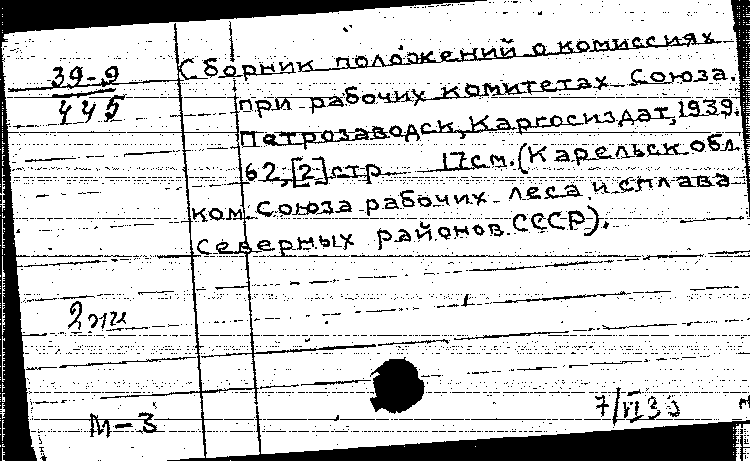 39-9
445
Сборник положений о комиссиях
при рабочих комитетах Союза.
Петрозаводск, Каргосиздат, 1939.
62,[2]стр. 17см. (Карельск. обл.
ком. Союза рабочих леса и сплава
Северных районов СССР).
М-3